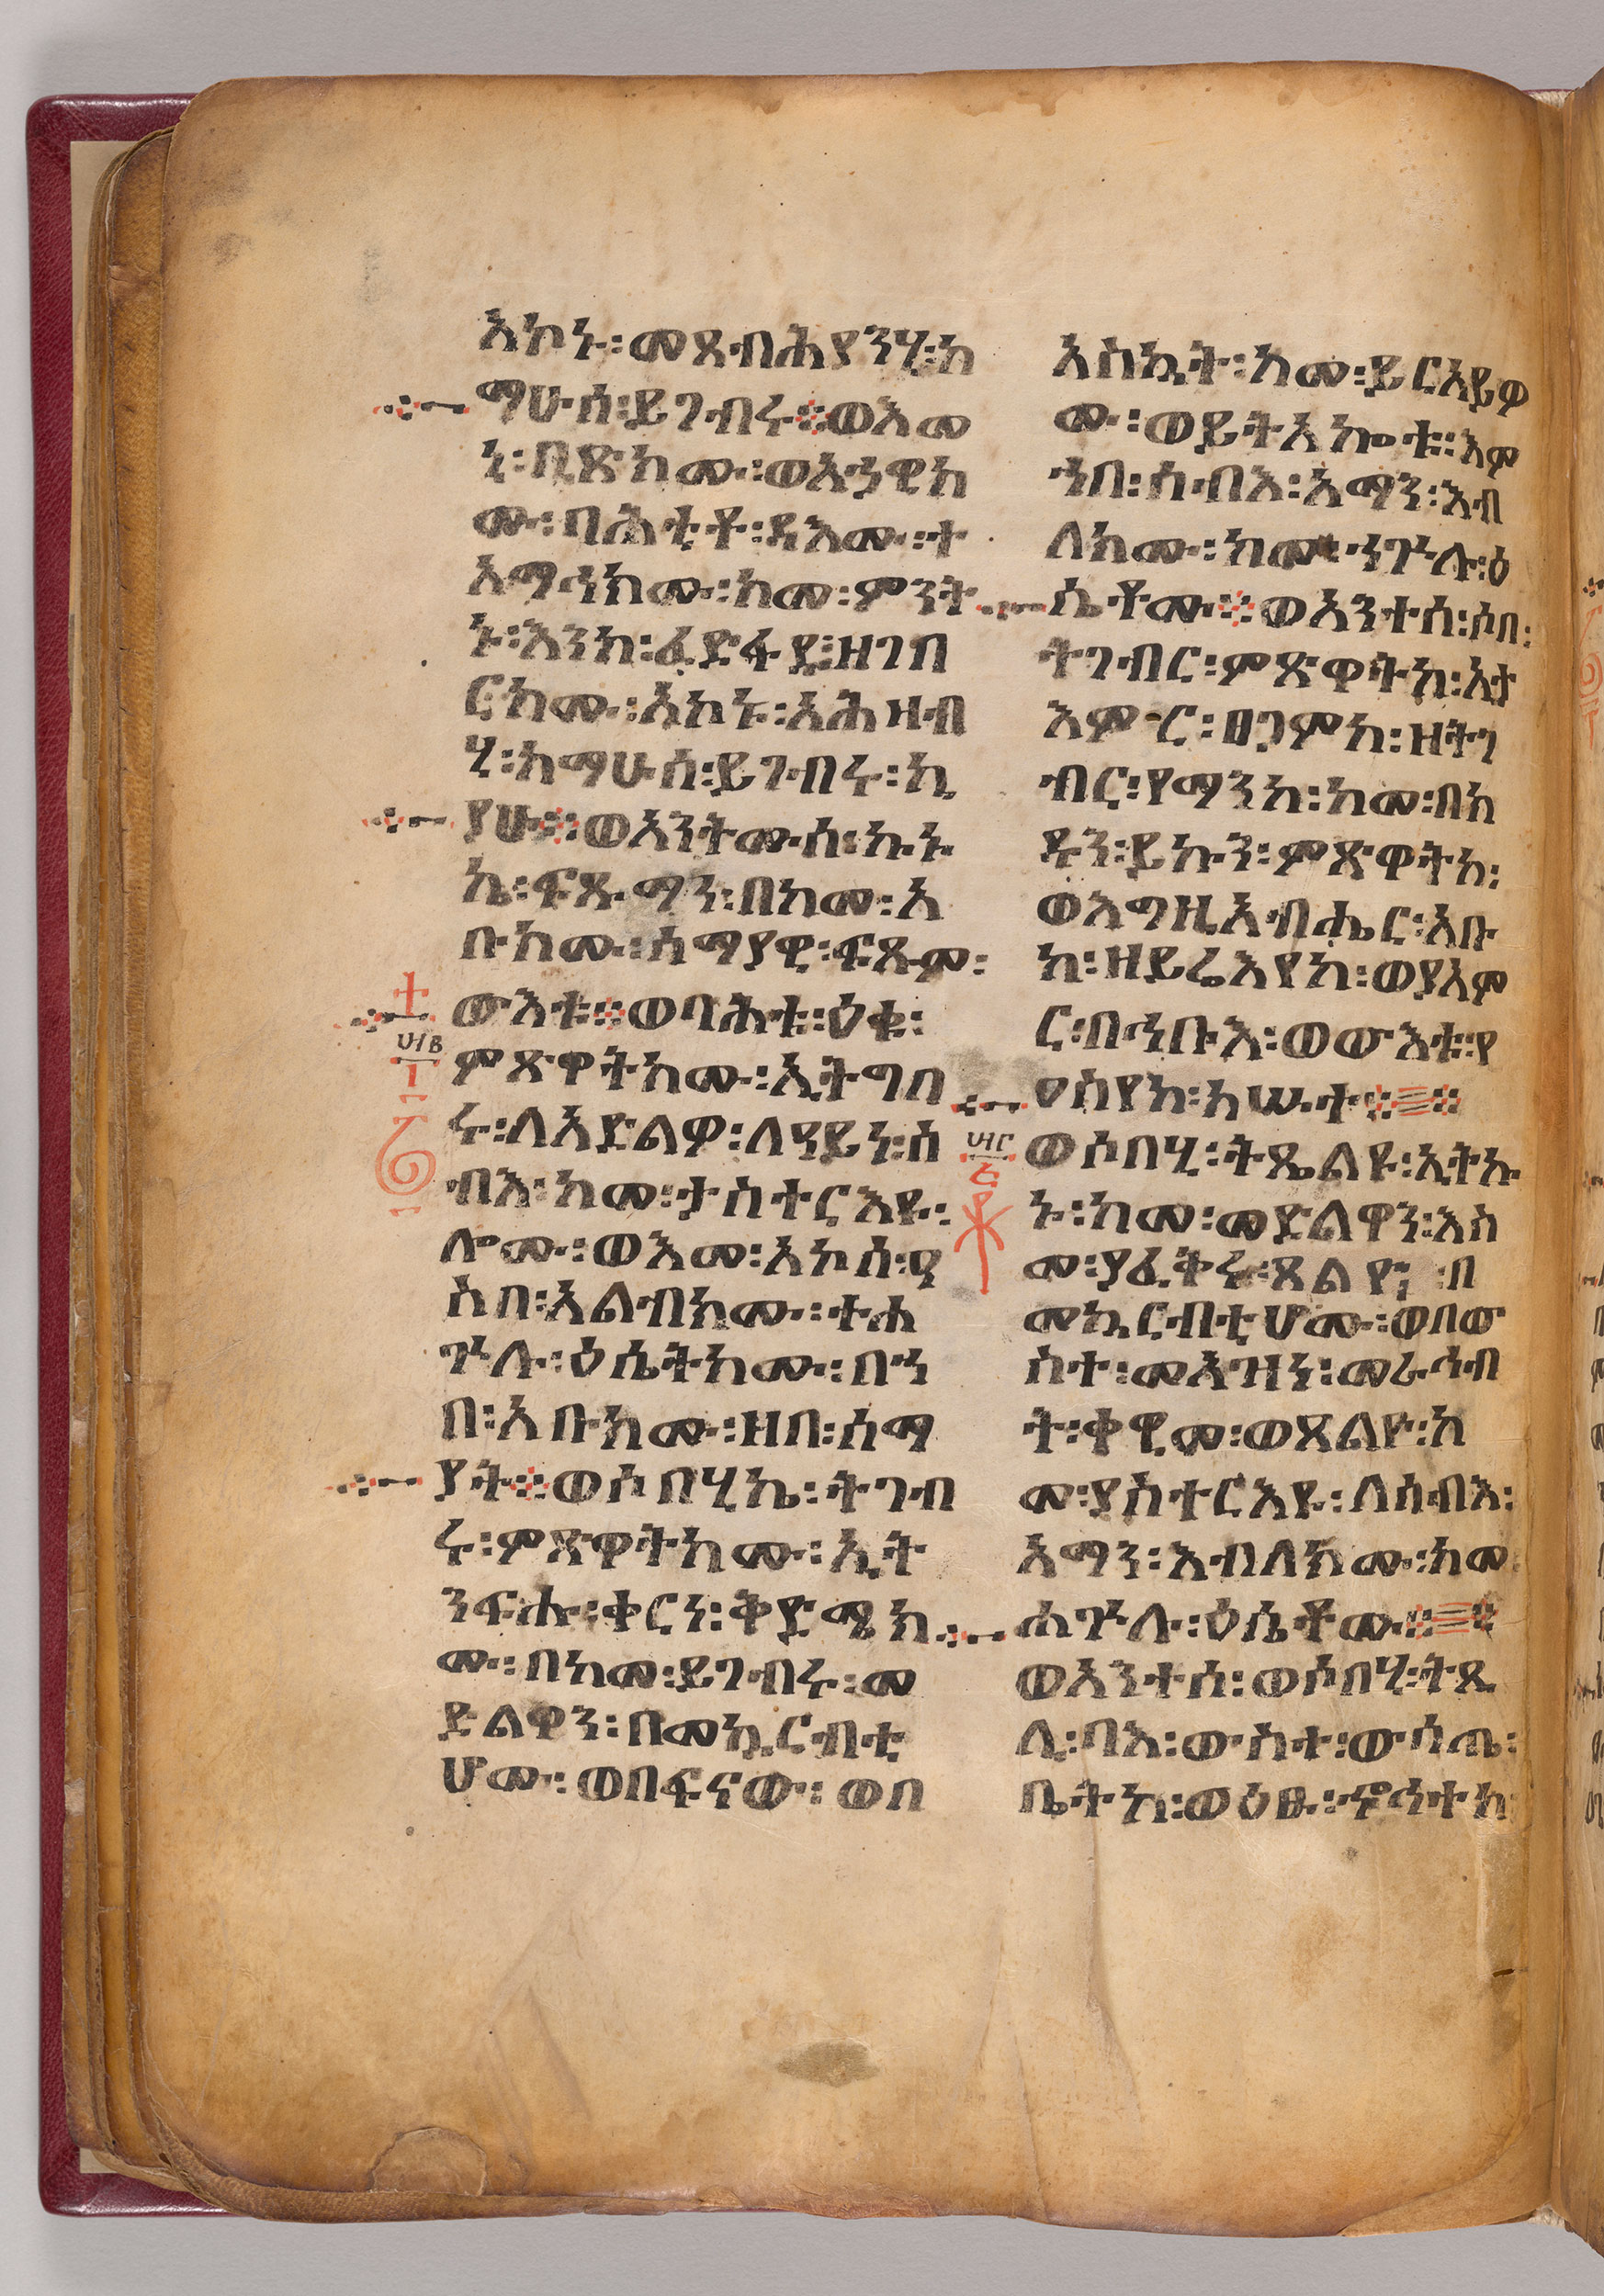 አኮኑ፡መጸብሕያንሂ፡ከ
ማሁሰ፡ይገብሩ፨ወእመ
ኒ፡ቢጽክሙ፡ወእኃዊክ
ሙ፡ባሕቲቶ፡ዳእሙ፡ተ
አማኅክሙ፡ከመ፡ምንት
ኑ፡እንከ፡ፈድፋደ፡ዘገበ
ርክሙ፡አኮኑ፡አሕዛብ
ሂ፡ከማሁሰ፡ይገብሩ፡ኪ
ያሁ፨ወአንትሙሰ፡ኩኑ
ኬ፡ፍጹማን፡በከመ፡አ
ቡክሙ፡ሰማያዊ፡ፍጹም፡
ውእቱ፨ወባሕቱ፡ዕቁ፡
ምጽዋትክሙ፡ኢትግበ
ሩ፡ለአድልዎ፡ለዓይነ፡ሰ
ብእ፡ከመ፡ታስተርእዩ፡
ሎሙ፡ወእመ፡አኮሰ፡ዐ
ስበ፡አልብክሙ፡ተሐ
ጕሉ፡ዕሴትክሙ፡በኀ
በ፡አቡክሙ፡ዘበ፡ሰማ
ያት፨ወሶበሂኬ፡ትገብ
ሩ፡ምጽዋትክሙ፡ኢት
ንፍሑ፡ቀርነ፡ቅድሜክ
ሙ፡በከመ፡ይገብሩ፡መ
ድልዋን፡በመኳርብቲ
ሆሙ፡ወበፍናው፡ወበ
አስኳት፡ከመ፡ይርአይዎ
ሙ፡ወይትአኰቱ፡እም
ኀበ፡ሰብእ፡አማን፡እብ
ለክሙ፡ከመ፡ኀጕሉ፡ዕ
ሴቶሙ፨ወአንተሰ፡ሶበ፡
ትገብር፡ምጽዋትከ፡ኢታ
እምር፡ፀጋምከ፡ዘትገ
ብር፡የማንከ፡ከመ፡በክ
ዱን፡ይኩን፡ምጽዋትከ፡
ወእግዚአብሔር፡አቡ
ከ፡ዘይሬእየከ፡ወያአም
ር፡በኅቡእ፡ውውእቱ፡የ
ዐስየከ፡ክሡተ፨
ወሶበሂ፡ትጼልዩ፡ኢትኩ
ኑ፡ከመ፡መድልዋን፡እስ
መ፡ያፈቅሩ፡ጸልየ፡በ
መኳርብቲሆሙ፡ወበው
ስተ፡መእዝነ፡መራኅብ
ት፡ቀዊመ፡ወጸልዮ፡ከ
መ፡ያስተርእዩ፡ለሰብእ፡
አማን፡እብለክሙ፡ከመ
ሐጕሉ፡ዕሴቶሙ፨
ወአንተሰ፡ወሶበሂ፡ትጼ
ሊ፡ባእ፡ውስተ፡ውሳጤ፡
ቤትከ፡ወዕፁ፡ኆኅተከ